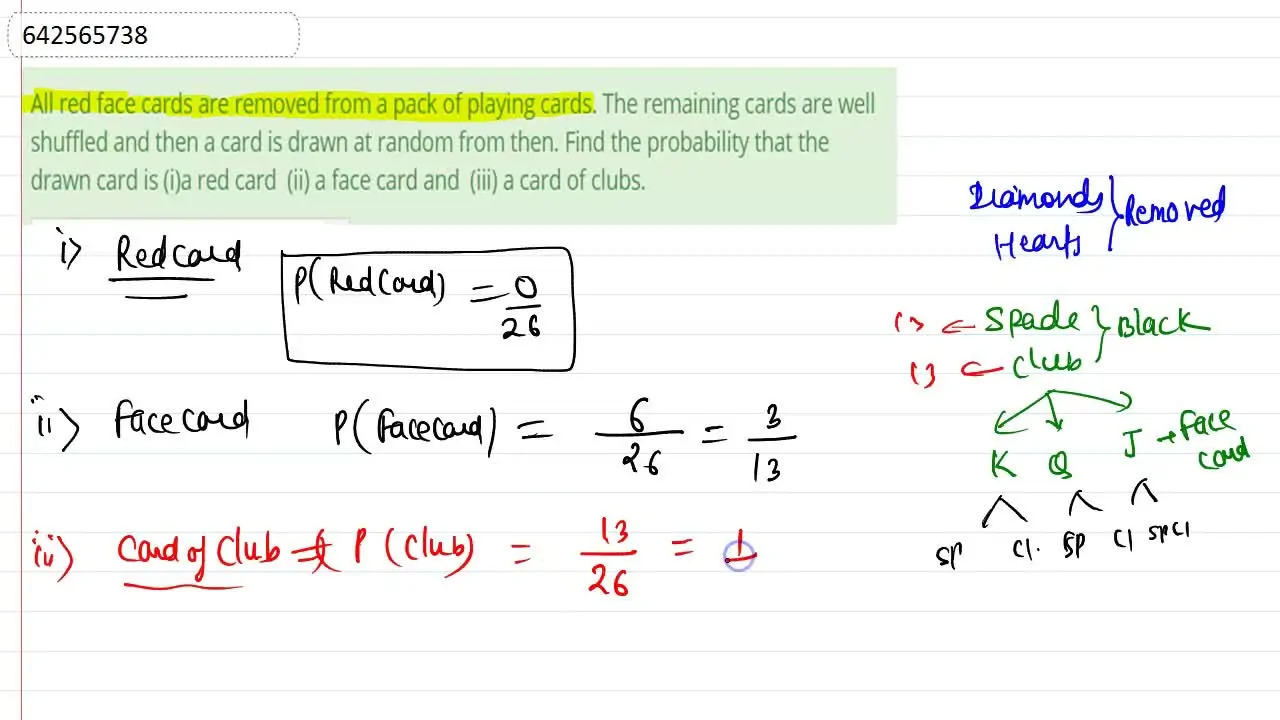 642565738
All red face cards are removed from a pack of playing cards. The remaining cards are well
shuffled and then a card is drawn at random from then. Find the probability that the
drawn card is (i)a red card (ii) a face card and (iii) a card of clubs.
i) Red card
P(Red Card) = 0/26
ii) Face card P(Face card) = 6/26 = 3/13
iii) Card of Club P(Club) = 13/26 = 1
Diamonds
Hearts } Removed
13 ← Spade
13 ← Club } Black
K Q J → Face
Card
SP Cl. SP Cl SP Cl